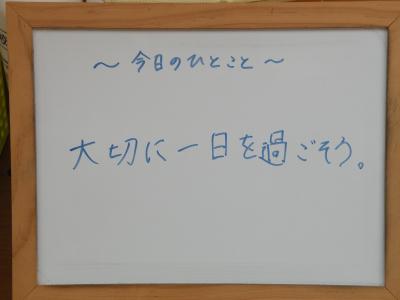 ～今日のひとこと～
大切に一日を過ごそう。